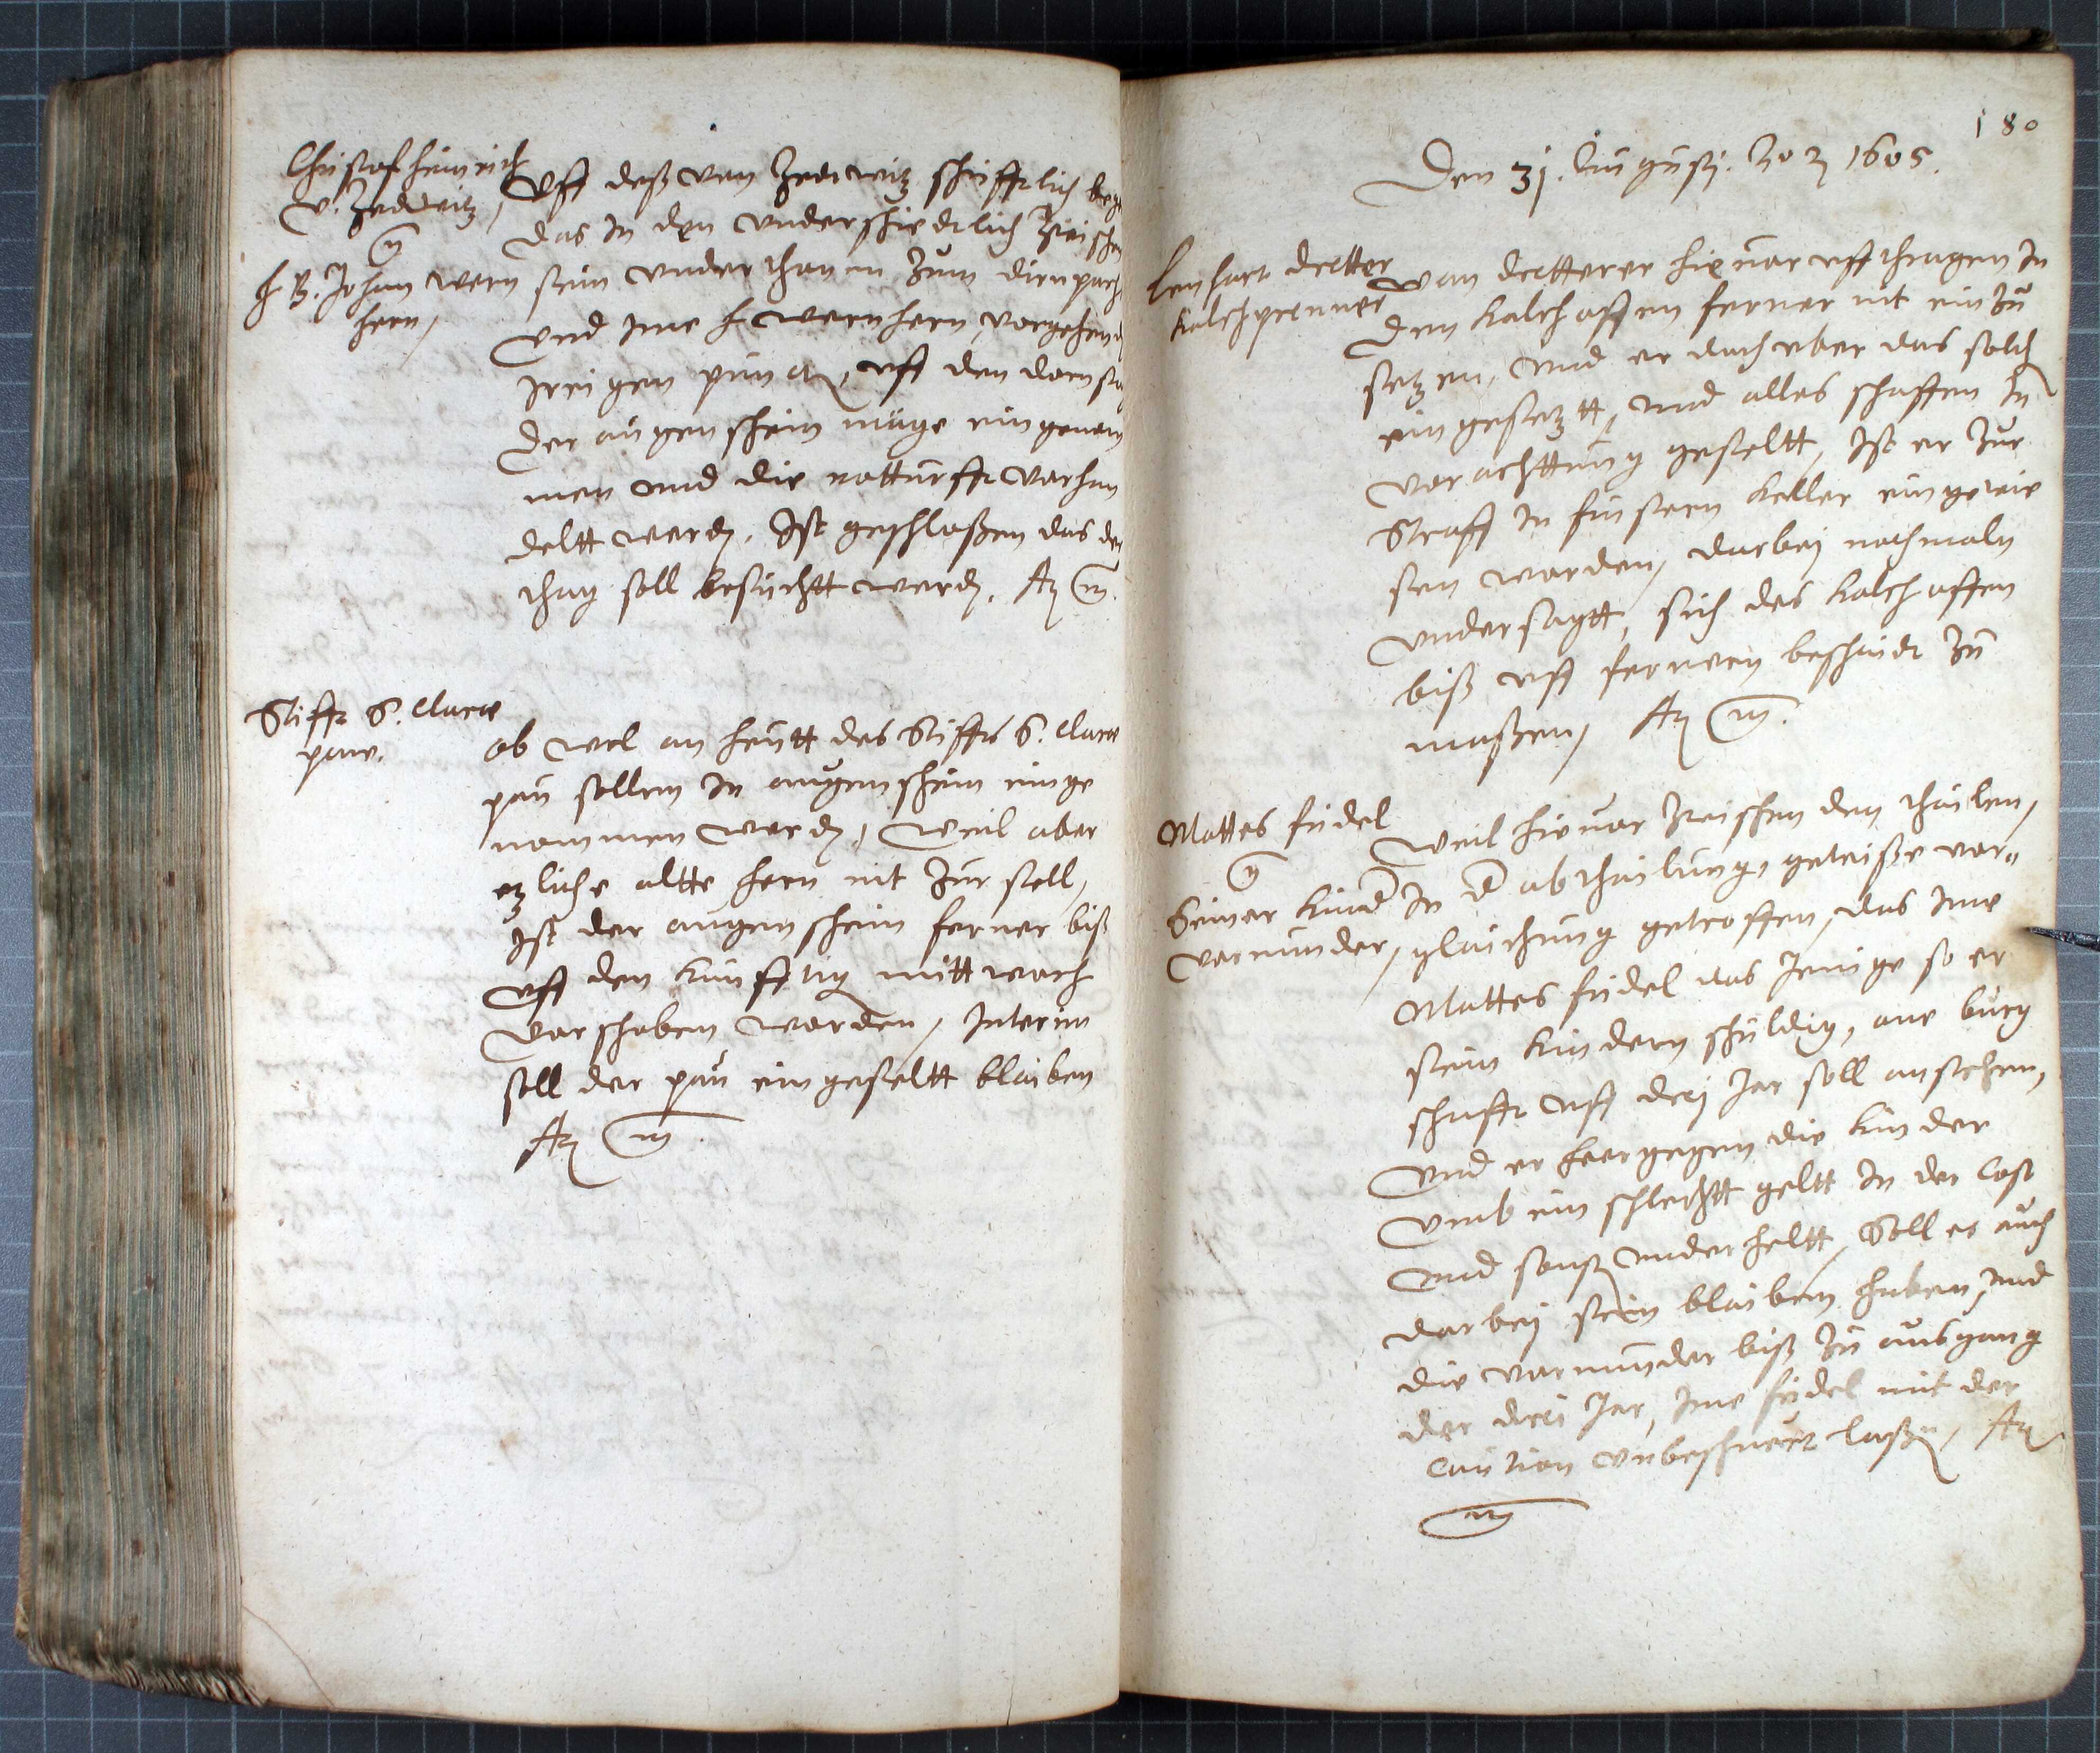 Christof Heinrich
v. Zedwitz,
H B. Johan Wern
hern,
Uff deß von Zedtwitz schrifftlich
das in den underschiedtlich zwischen
sein underthanen zum dirnpach
und ime H Wernhern, vorgehend
irrigen puncten, uff den dornstag
der augenschein müge eingenom
men und die notturfft verhan
deltt werden. Ist geschloßen das der
thag soll besuchtt werden.
Stifft S. Clarae
paw.
Ob wol an heutt des Stiffts S. Clarae
pau sollen in augenschein einge
nommen werden, Weil aber
etzliche altte hern nit zur stell,
Ist der augenschein ferner biß
uff den kunfftig mittwoch
verschoben worden, Interim
soll der pau eingesteltt bleiben
180
Den 31. Augusti. Ao 1605.
Lenhart dretter
kalchprenner
Wan dretterer hievor ufferthragen in
den kalchoffen ferner nit ein zu
setzen, und er doch uber das solch
eingesetztt, und alles schaffen in
verachttung gesteltt, Ist er zur
Straff in finstern keller eingewie
sen worden, darbei nochmaln
undersagtt, sich des kalchoffen
biß uff fernern bescheidt zu
maßen,
Mattes fridel
Seiner kinder
vormunder,
Weil hievor zwischen den theilen,
in der abtheilung, gewiße ver„
gleichung getroffen, das ime
Mattes fridel das jenige so er
sein kindern schuldig, one burg
schafft uff drei Jar soll anstehen,
und er heergegen die kinder
umb ein schlechtt geltt in der Cost
und sonst underheltt, Soll es auch
darbei sein bleiben haben, und
die vormunder biß zu ausgang
der drei Jar, ime fridel mit der
Caution unbeschwert laßen,